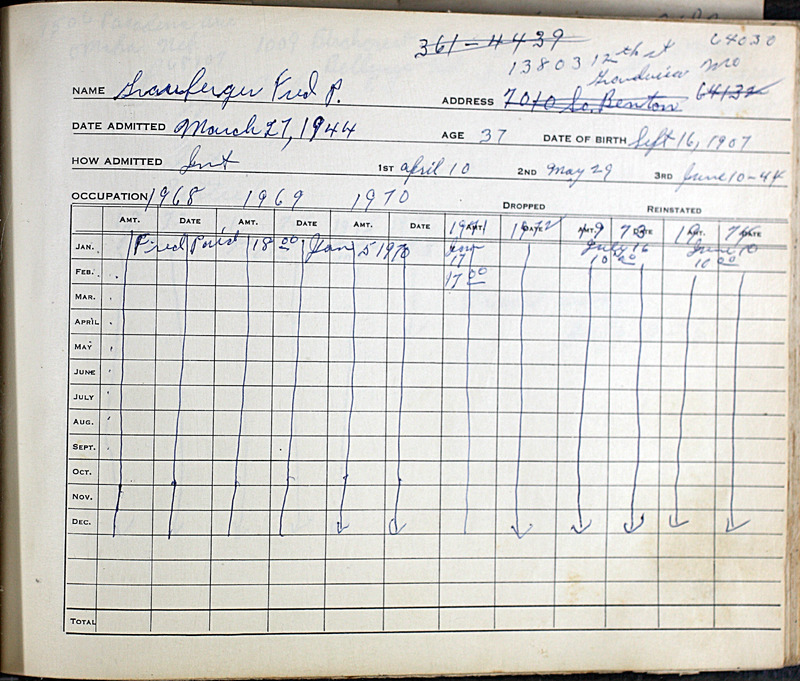 361-4439 64030
13803 12th st
Grandview Mo
NAME Grauberger Fred P. ADDRESS 7010 So. Benton 64132
DATE ADMITTED March 27, 1944 AGE 37 DATE OF BIRTH Sept 16, 1907
HOW ADMITTED Int 1ST April 10 2ND May 29 3RD June 10-44
OCCUPATION 1968 1969 1970 DROPPED REINSTATED
AMT. DATE AMT. DATE AMT. DATE 1971 AMT. 1972 DATE AMT. 19 73 DATE 19 AMT. 74 DATE
JAN. Fred Paid 18 00 Jan 5 1970 Jan 17 July 16 10 00 June 10 10 00
FEB. 17 00
MAR.
APRIL
MAY
JUNE
JULY
AUG.
SEPT.
OCT.
NOV.
DEC.
TOTAL